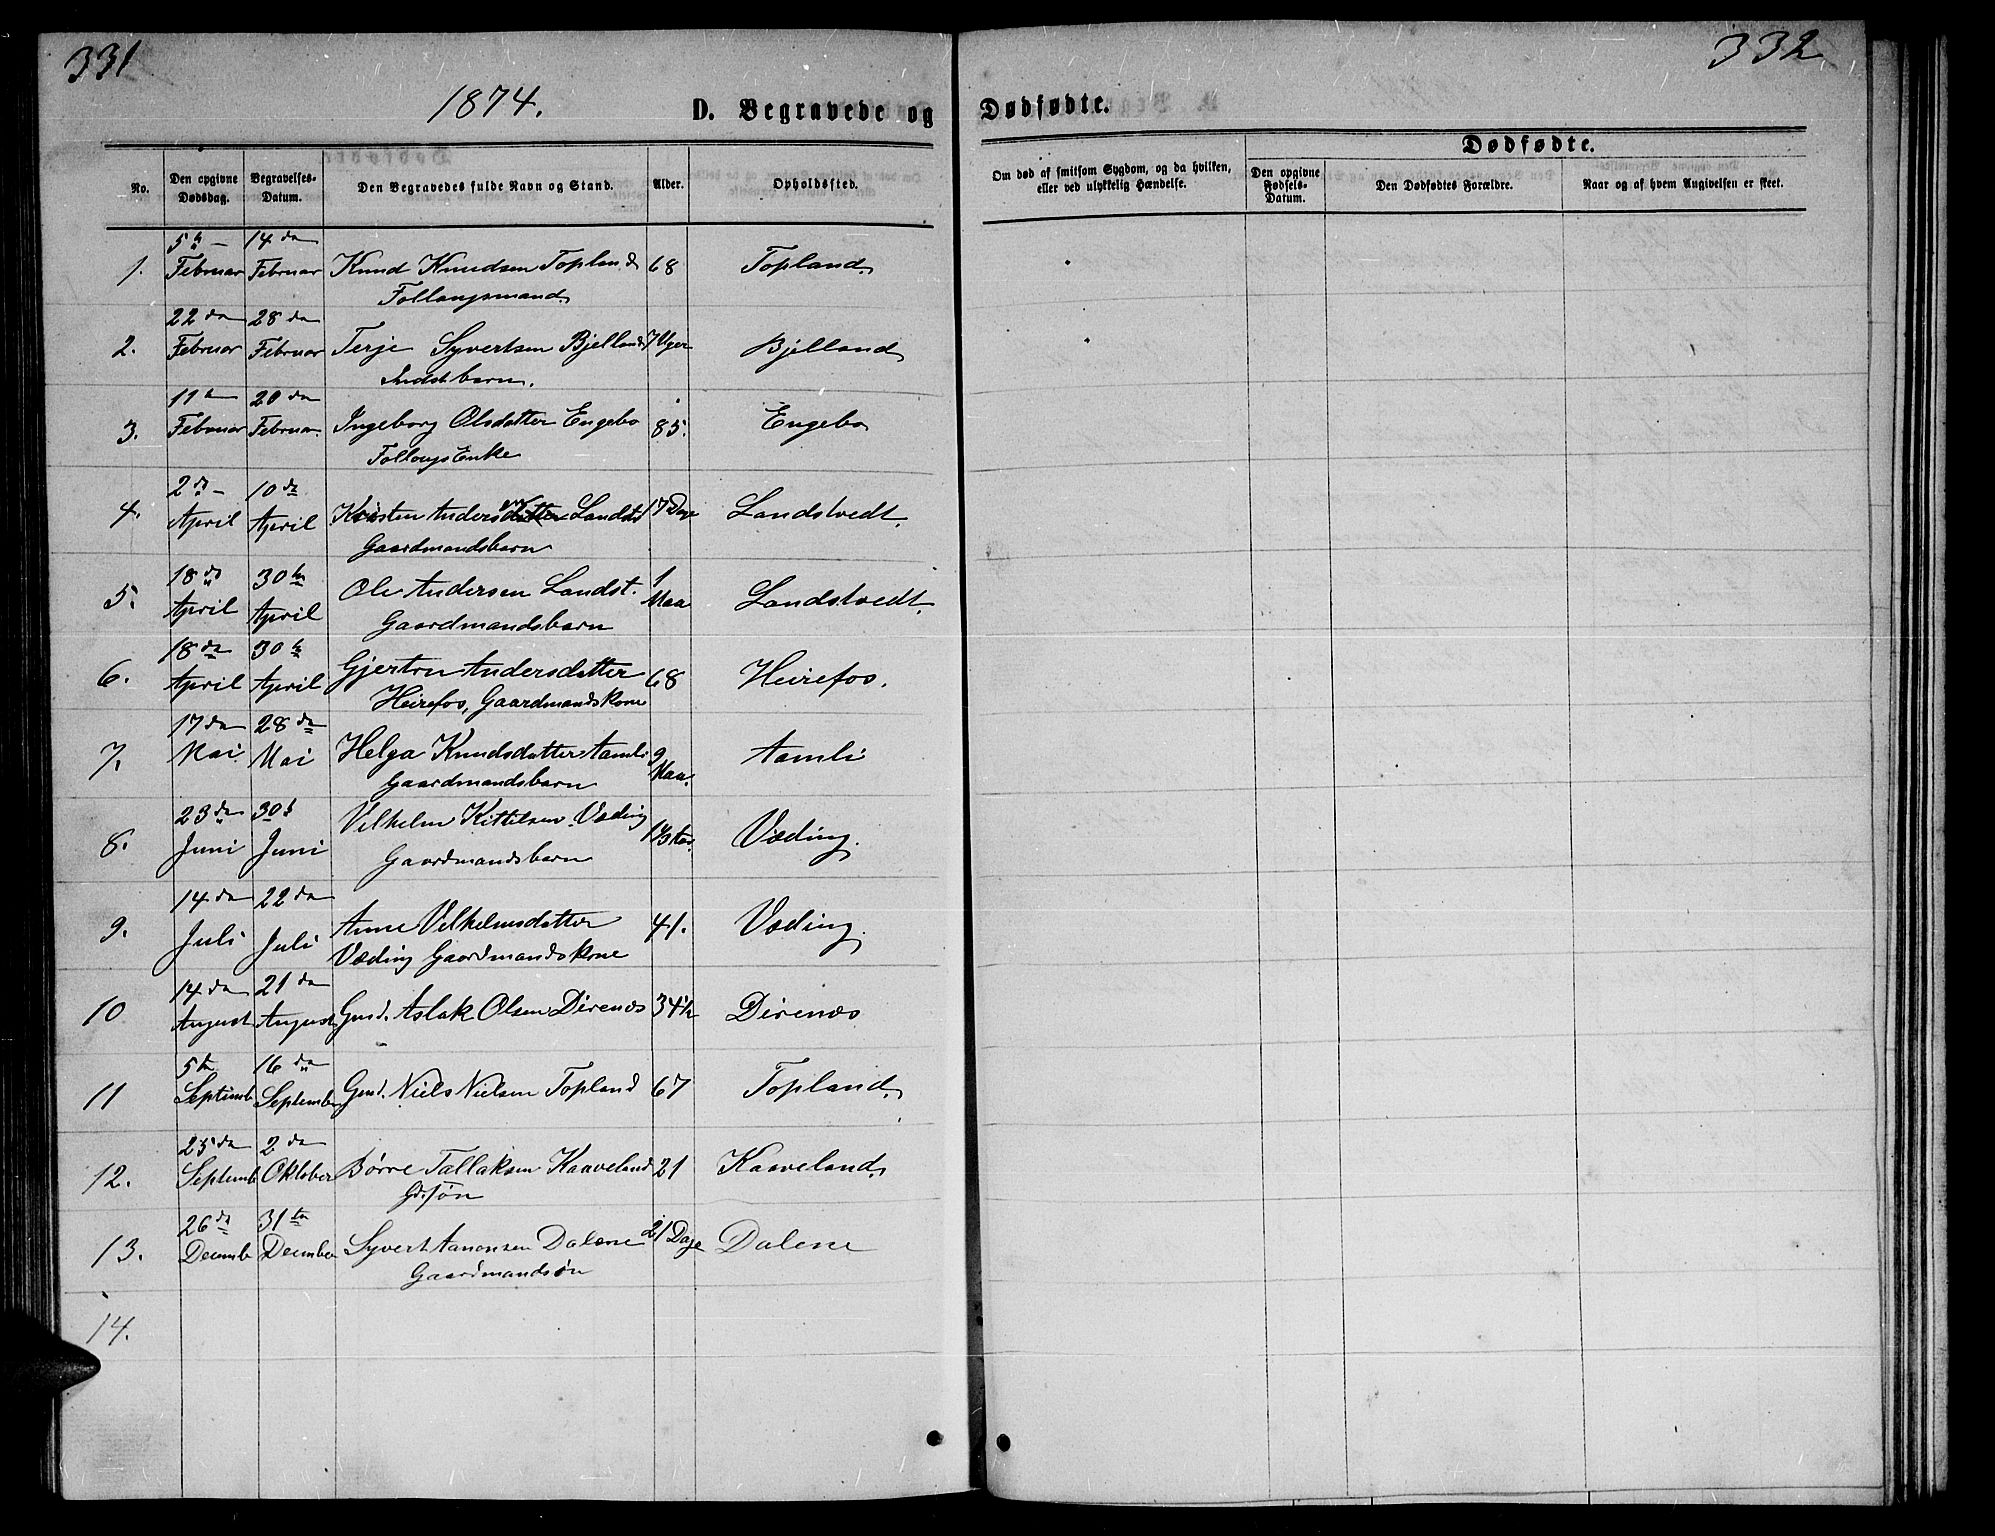 331
1874.
D. Begravede og
No.
Den opgivne Dødsdag.
Begravelses-Datum.
Den Begravedes fulde Navn og Stand.
Alder.
Opholdssted.
5te 14de
1. Februar Februar Knud Knudsen Topland 68 Topland
Follougsmand
22de 28de
2. Februar Februar Terje Syvertsen Bjelland 7 Uger Bjelland
Indstbarn.
11te 20de
3. Februar Februar. Ingeborg Olsdatter Engebo 85. Engebo
FollougsEnke
2de 10de
4. April April Anders Landst 17 Dage Landstvedt.
Gaardmandsbarn
18de 30te
5. April April Ole Andersen Landst. 1 Maa Landstvedt.
Gaardmandsbarn
18de 30te
6. April April Gjertru Andersdatter 68 Heirefos.
Heirefos, Gaardmandskone
17de 28de
7. Mai Mai Helga Knudsdatter Aamli 9 Maa. Aamli
Gaardmandsbarn
23de 30te
8. Juni Juni Vilhelm Kittilsen Væding Væding.
Gaardmandsbarn
14de 22de
9. Juli Juli Anne Vilhelmsdatter 41. Væding.
Væding Gaardmandskone
14de 21de
10 August August Gmd. Aslak Olsen Direnæs 34½ Direnæs
5te 16de
11 Septemb September Gmd. Niels Nielsen Topland 67 Topland
25de 2de
12. Septemb Oktober Børre Tallaksen Kaaveland 21 Kaaveland
Gd.søn
26de 31te
13. Decemb December Syvert Aanonsen Dalene 21 Dage Dalene
Gaardmandsøn
14.
332
Dødfødte.
Om død af smitsom Sygdom, og da hvilken,
eller ved ulykkelig Hændelse.
Dødfødte.
Den opgivne Fødsels-Datum.
Den Dødfødtes Forældre.
Naar og af hvem Angivelsen er skeet.